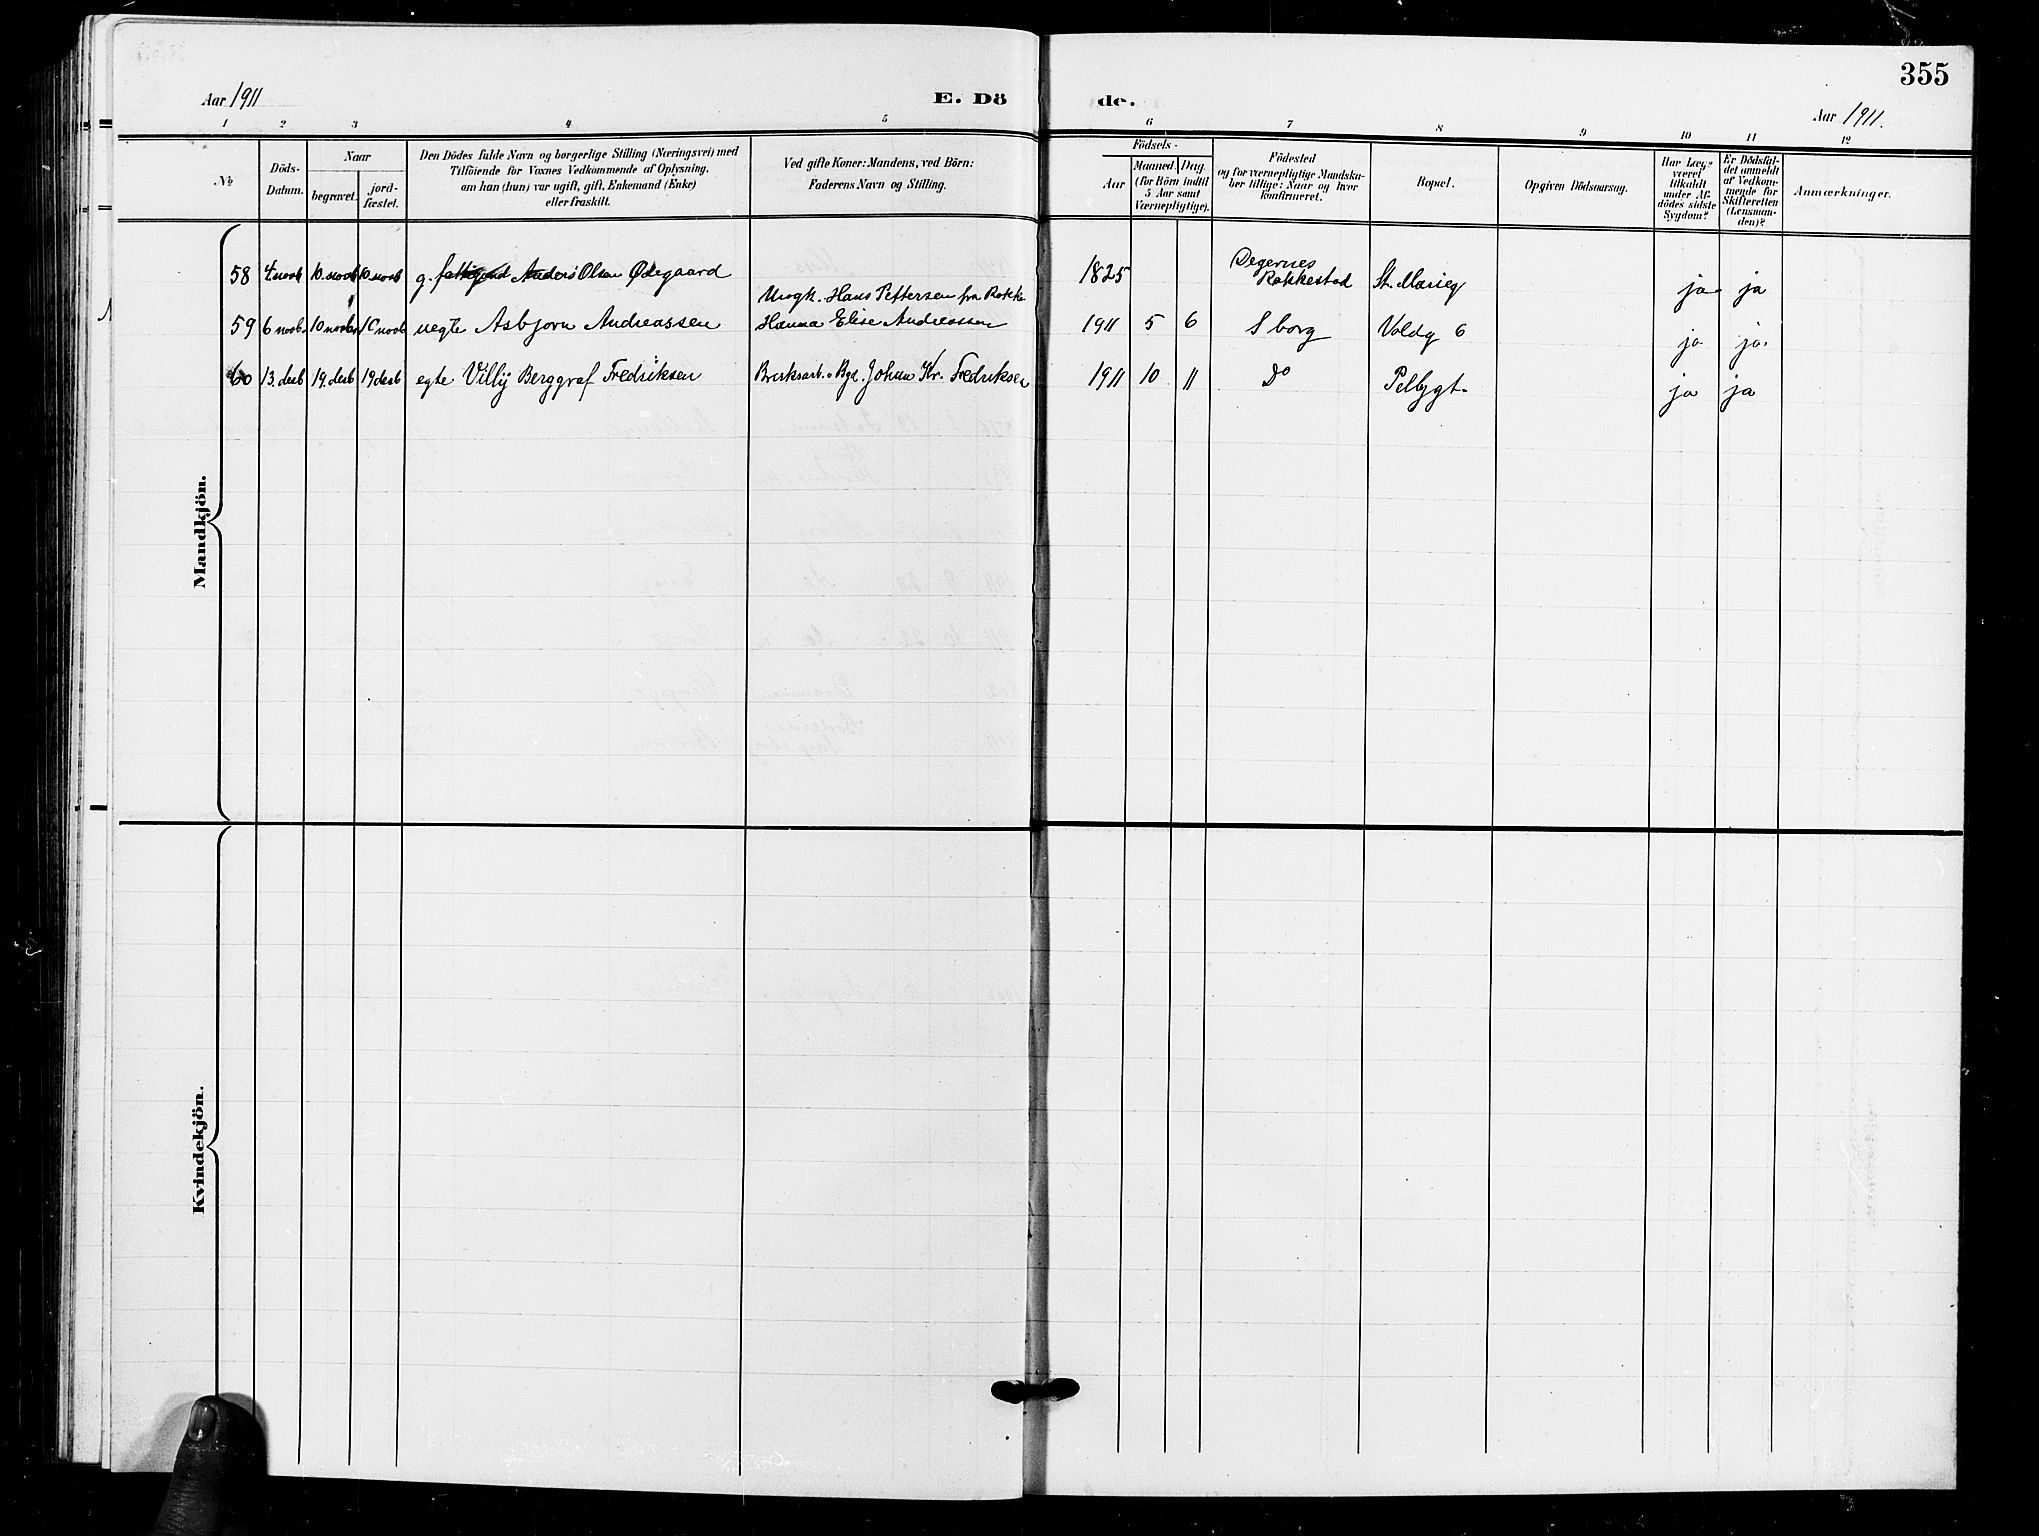 355
Aar 1911
E. Dö de.
Aar 1911.
1 2 3 4 5 6 7 8 9 10 11 12
№
Döds-
Datum.
Naar
begravet.
jord-
fæstet.
Den Dödes fulde Navn og borgerlige Stilling (Næringsvei) med
Tilföiende for Voxnes Vedkommende af Oplysning,
om han (hun) var ugift, gift, Enkemand (Enke)
eller fraskilt.
Ved gifte Koner: Mandens, ved Börn:
Faderens Navn og Stilling.
Födsels-
Aar
Maaned. Dag.
(for Börn indtil
5 Aar samt
Værnepligtige).
Födested
og for værnepligtige Mandska-
ber tillige: Naar og hvor
konfirmeret.
Bopæl.
Opgiven Dödsaarsag.
Har Læge
været
tilkaldt
under Af-
dödes sidste
Sygdom?
Er Dödsfal-
det anmeldt
af Vedkom-
mende for
Skifteretten
(Lensman-
den)?
Anmærkninger.
Mandkjön.
58 4 novb 10. novb 10. novb g. Anders Olsen Ødegaard 1825 Degernes Rakkestad St. Marieg ja ja
Ungk. Hans Pettersen fra Rakk.
59 6 novb. 10 novb 10 novb uegte Asbjørn Andreassen Hanna Elise Andreassen 1911 5 6 S borg Voldg 6 ja ja.
60 13. desb 19. desb 19 desb egte Villy Berggraf Fredriksen Bruksarb. Bgd. Johan Kr. Fredriksen 1911 10 11 Do Pelbygt. ja ja
Kvindekjön.